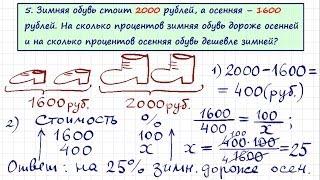 5. Зимняя обувь стоит 2000 рублей, а осенняя – 1600
рублей. На сколько процентов зимняя обувь дороже осенней
и на сколько процентов осенняя обувь дешевле зимней?
1600руб. 2000руб.
1) 2000-1600=
=400(руб)
2) Стоимость %
1600 100
400 x
1600/400 = 100/x ;
x = 400·100/1600 = 25
Ответ: на 25% зимн. дороже осен.